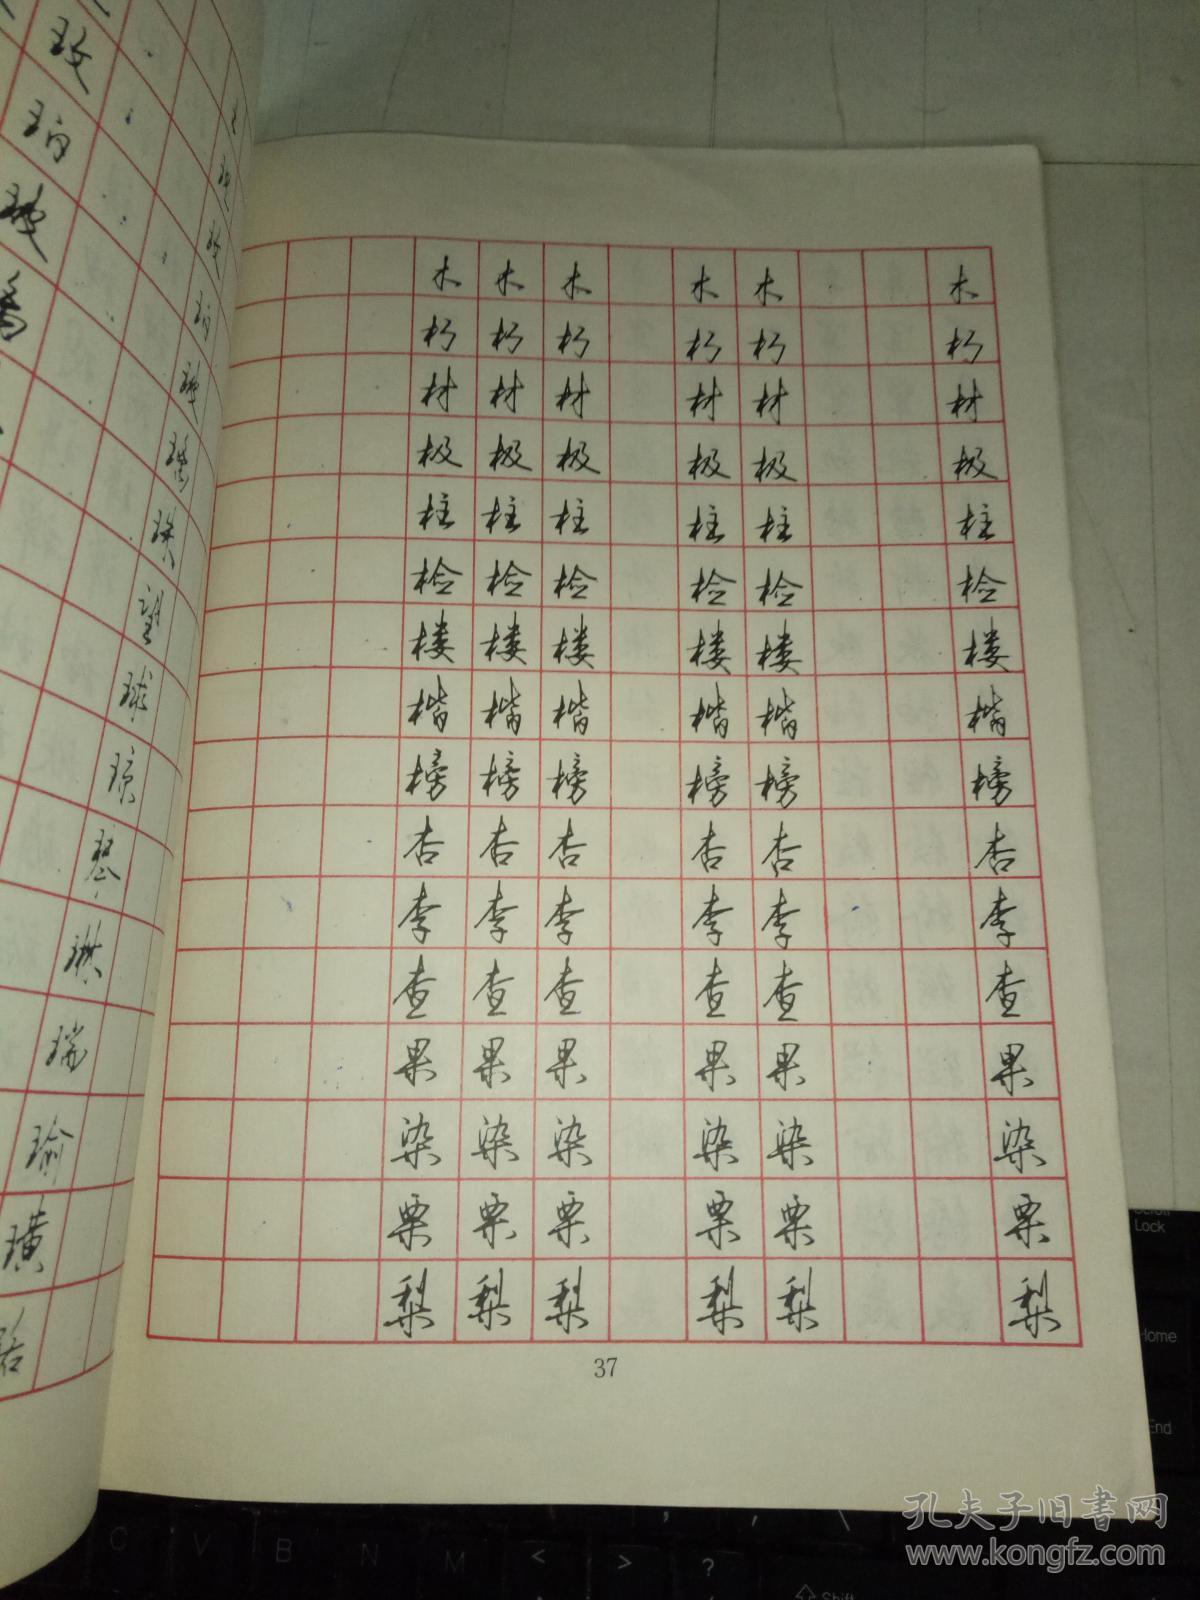 木 木 木 木 木 木
朽 朽 朽 朽 朽 朽
材 材 材 材 材 材
极 极 极 极 极 极
柱 柱 柱 柱 柱 柱
检 检 检 检 检 检
楼 楼 楼 楼 楼 楼
楷 楷 楷 楷 楷 楷
榜 榜 榜 榜 榜 榜
杏 杏 杏 杏 杏 杏
李 李 李 李 李 李
查 查 查 查 查 查
果 果 果 果 果 果
染 染 染 染 染 染
栗 栗 栗 栗 栗 栗
梨 梨 梨 梨 梨 梨
37
玫
玖
珠
望
球
琼
琴
琳
瑞
瑜
璜
Lock
Home
End
C V B N M < > ?
Shift
孔夫子旧书网
www.kongfz.com